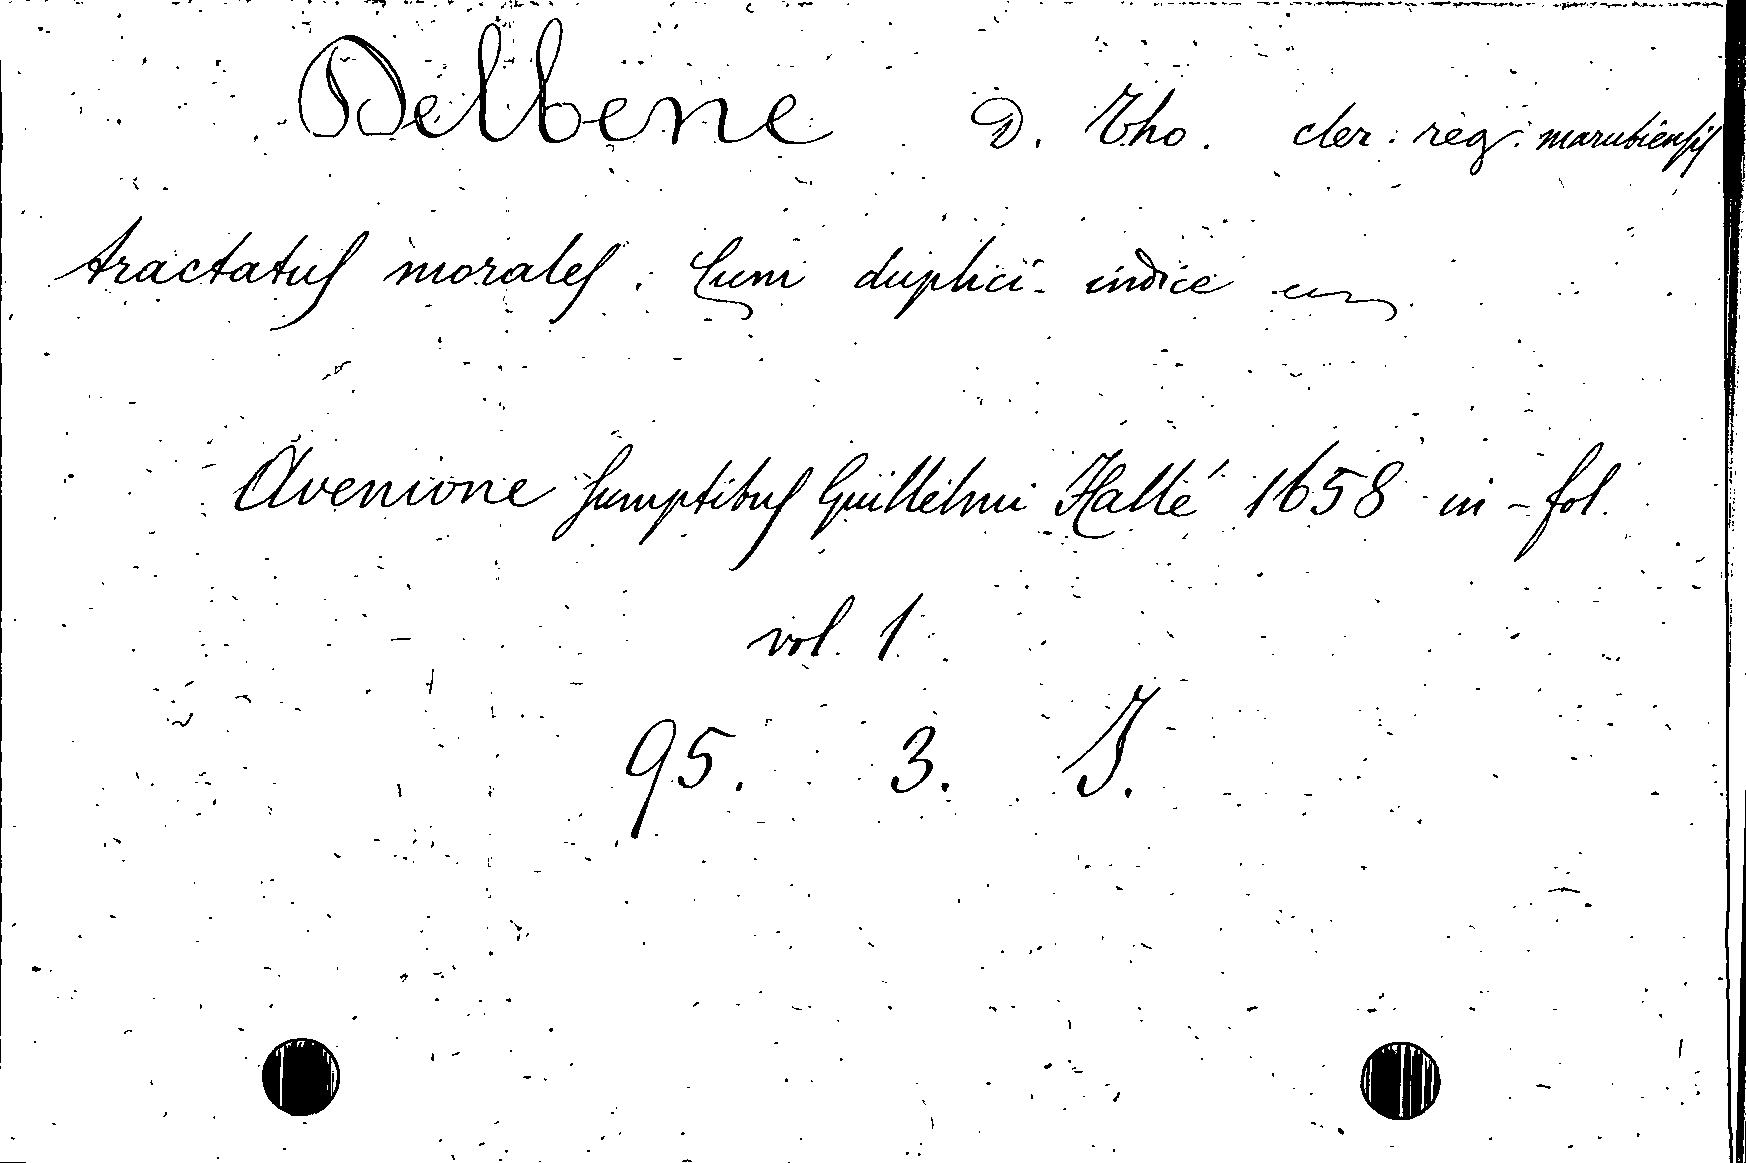 Delbene D. Tho. cler. reg. marubiensis
tractatus morales. Cum duplici indice
Avenione sumptibus Guillelmi Hallé 1658 in-fol.
vol. 1
95. 3. I.